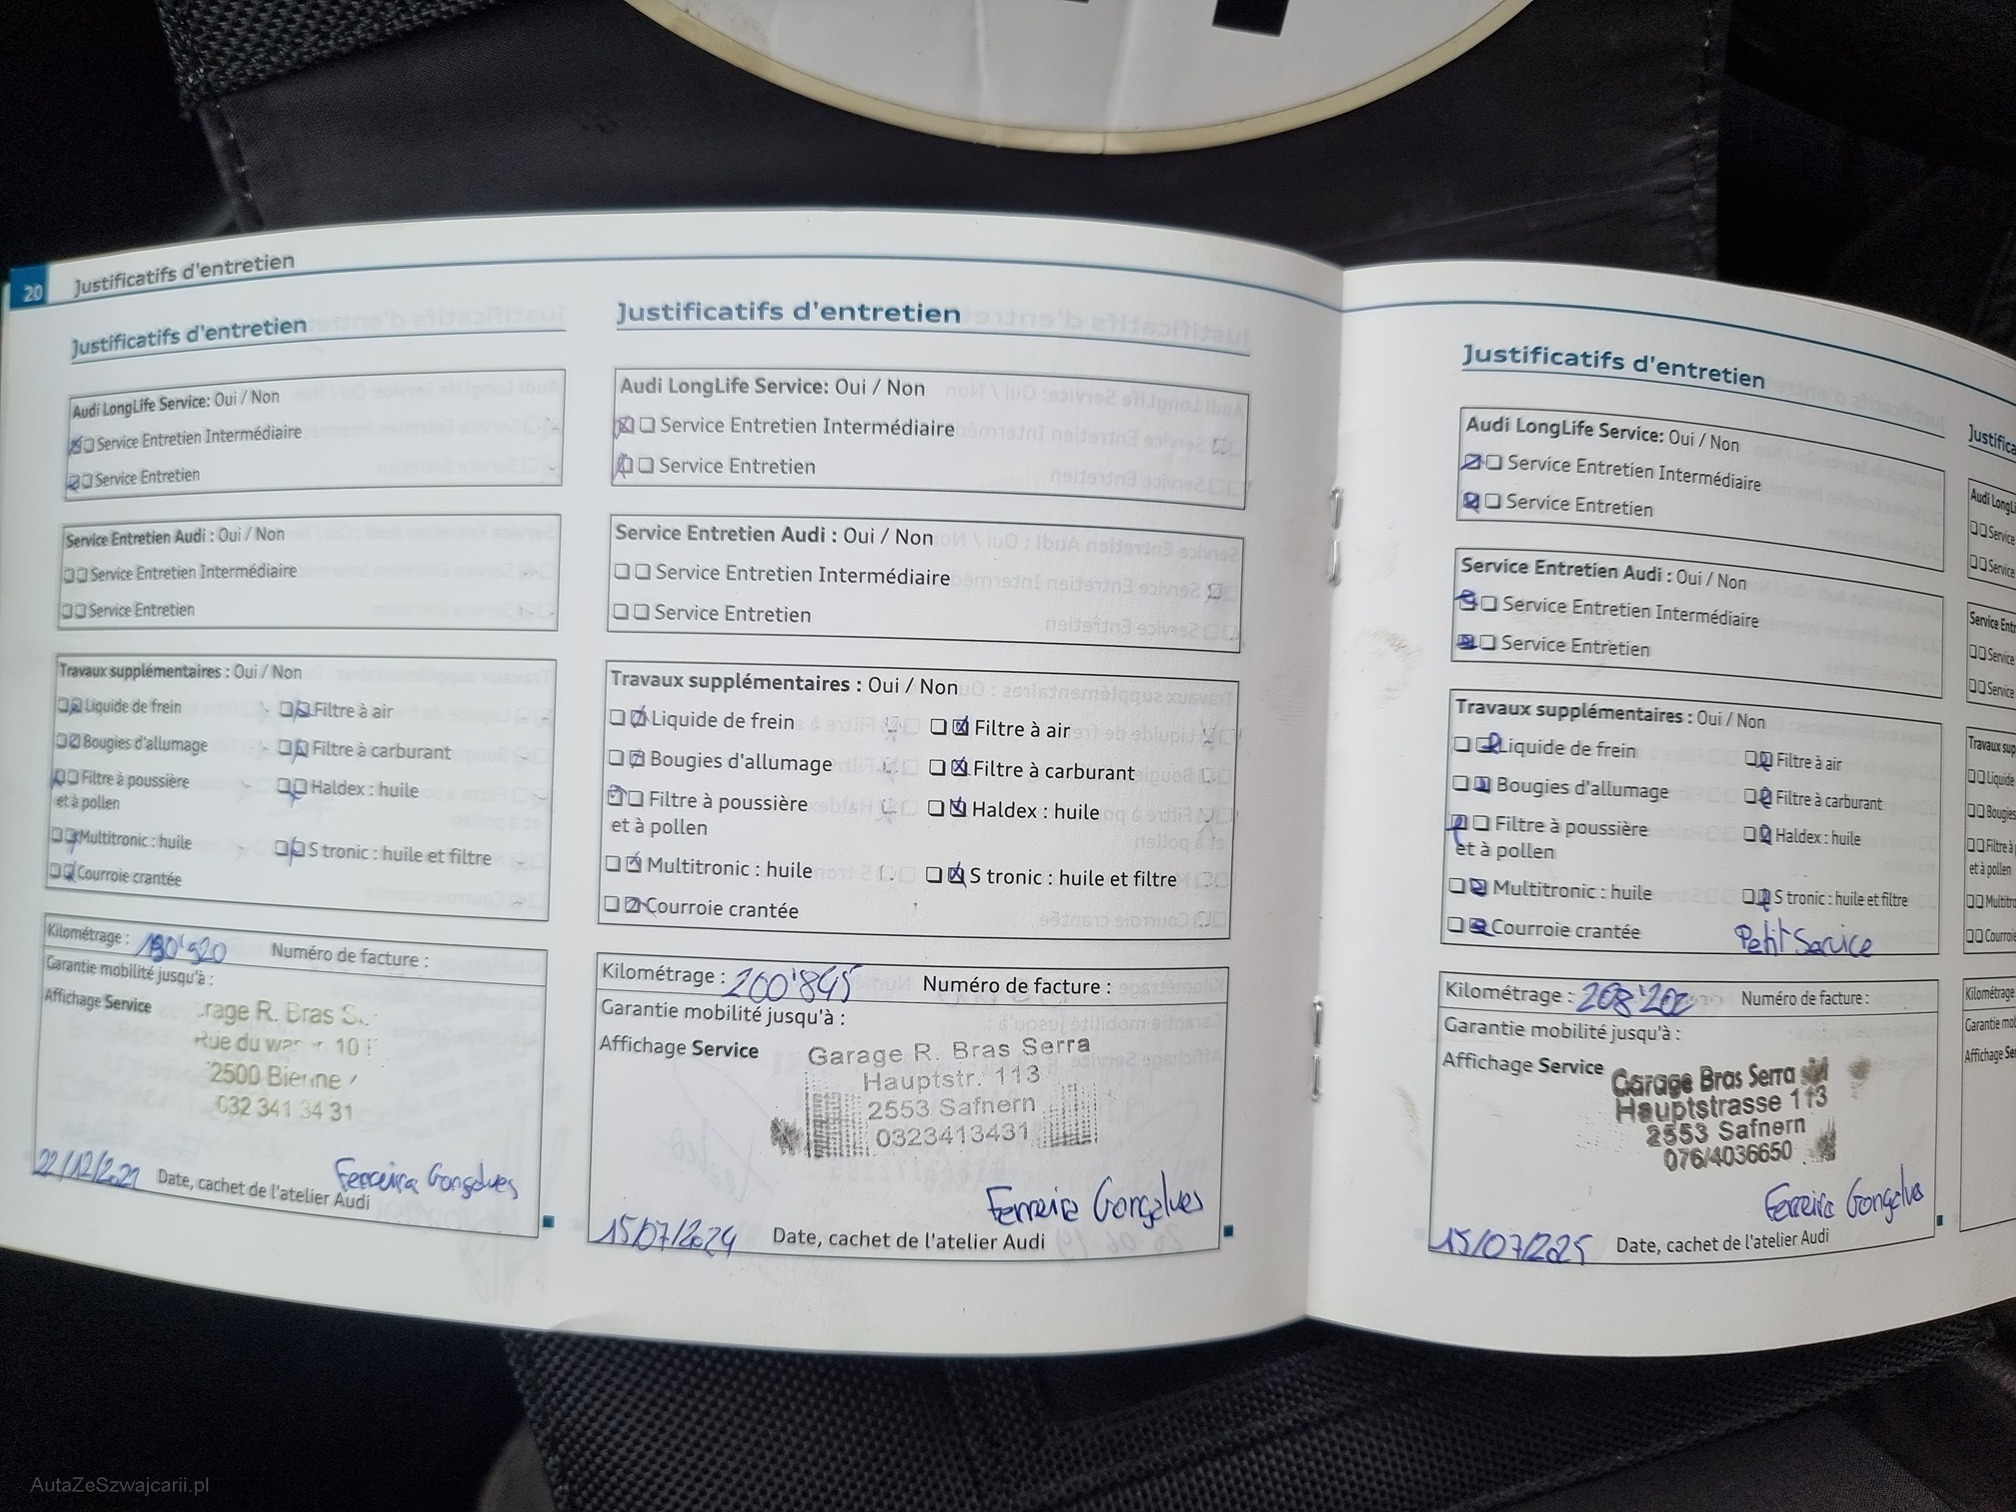 20 Justificatifs d'entretien
Justificatifs d'entretien
Audi LongLife Service: Oui / Non
Service Entretien Intermédiaire
Service Entretien
Service Entretien Audi : Oui / Non
Service Entretien Intermédiaire
Service Entretien
Travaux supplémentaires : Oui / Non
Liquide de frein Filtre à air
Bougies d'allumage Filtre à carburant
Filtre à poussière Haldex : huile
et à pollen
Multitronic : huile S tronic : huile et filtre
Courroie crantée
Kilométrage : Numéro de facture :
Garantie mobilité jusqu'à :
Affichage Service
R. Bras
Rue du 10
2500 Bienne
032 341 34 31
Ferreira Gonçalves
22/12/2021 Date, cachet de l'atelier Audi
Justificatifs d'entretien
Audi LongLife Service: Oui / Non
Service Entretien Intermédiaire
Service Entretien
Service Entretien Audi : Oui / Non
Service Entretien Intermédiaire
Service Entretien
Travaux supplémentaires : Oui / Non
Liquide de frein Filtre à air
Bougies d'allumage Filtre à carburant
Filtre à poussière Haldex : huile
et à pollen
Multitronic : huile S tronic : huile et filtre
Courroie crantée
Kilométrage : 200'845 Numéro de facture :
Garantie mobilité jusqu'à :
Affichage Service
Garage R. Bras Serra
Hauptstr. 113
2553 Safnern
0323413431
Ferreira Gonçalves
15/07/2024 Date, cachet de l'atelier Audi
Justificatifs d'entretien
Audi LongLife Service: Oui / Non
Service Entretien Intermédiaire
Service Entretien
Service Entretien Audi : Oui / Non
Service Entretien Intermédiaire
Service Entretien
Travaux supplémentaires : Oui / Non
Liquide de frein Filtre à air
Bougies d'allumage Filtre à carburant
Filtre à poussière Haldex : huile
et à pollen
Multitronic : huile S tronic : huile et filtre
Courroie crantée Petit Service
Kilométrage : 208'202 Numéro de facture :
Garantie mobilité jusqu'à :
Affichage Service
Garage Bras Serra
Hauptstrasse 113
2553 Safnern
076/4036650
Ferreira Gonçalves
15/07/2025 Date, cachet de l'atelier Audi
Audi
Service
Service
Service
Service
Service
Travaux
Liquide
Bougies
Filtre à
et à pollen
Kilométrage
Garantie
Affichage
AutaZeSzwajcarii.pl